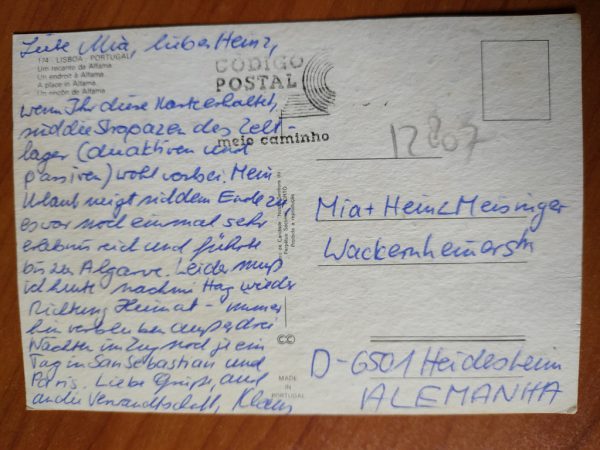 Liebe Mia, lieber Heinz,
174 - LISBOA - PORTUGAL
Um recanto da Alfama
Un endroit à Alfama
A place in Alfama
Un rincón de Alfama
CÓDIGO
POSTAL
meio caminho
wenn Ihr diese Karte erhaltet,
sind die Strapazen des Zelt-
lager (der aktiven und
passiven) wohl vorbei. Mein
Urlaub neigt sich dem Ende zu,
es war noch einmal sehr
erlebnisreich und führte
bis zur Algarve. Leider muß
ich heute nachmittag wieder
Richtung Heimat - immer
hin verbleiben außer drei
Nächten im Zug noch je ein
Tag in San Sebastian und
Paris. Liebe Grüße, auch
an die Verwandtschaft, Klaus
12807
Mia + Heinz Meisinger
Wackernheimerstr
D-6501 Heidesheim
ALEMANHA
MADE
IN
PORTUGAL